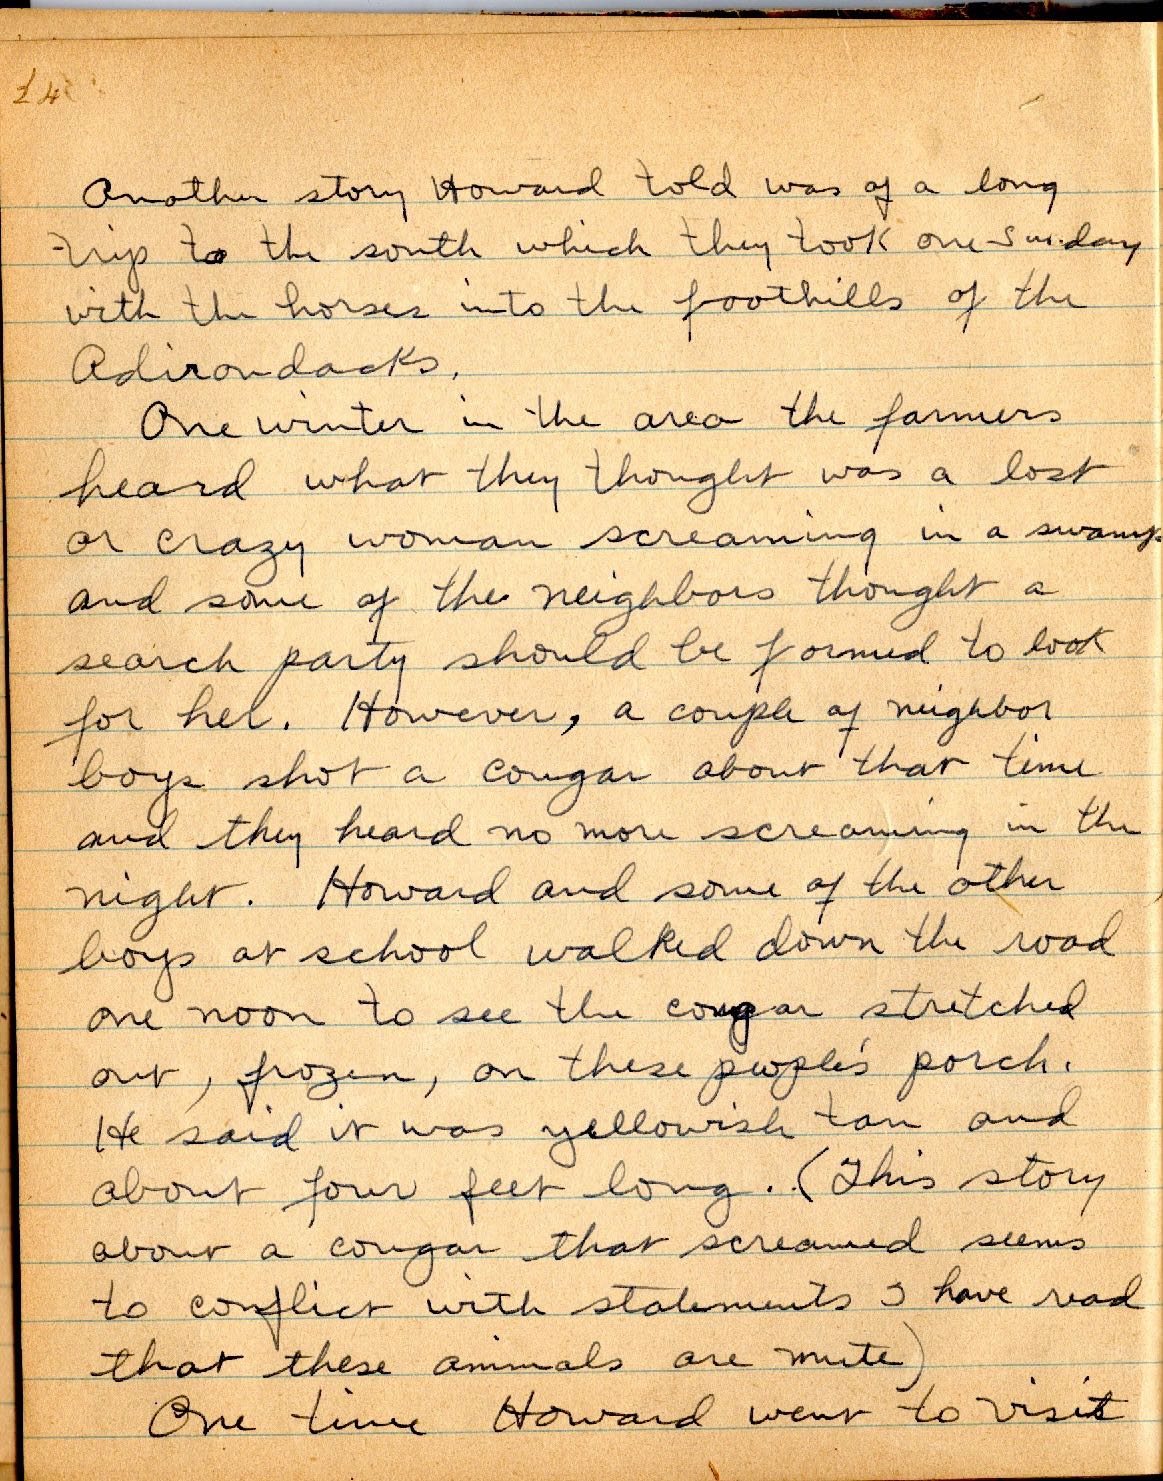 14
Another story Howard told was of a long
trip to the south which they took one Sunday
with the horses into the foothills of the
Adirondacks.
One winter in the area the farmers
heard what they thought was a lost
or crazy woman screaming in a swamp
and some of the neighbors thought a
search party should be formed to look
for her. However, a couple of neighbor
boys shot a cougar about that time
and they heard no more screaming in the
night. Howard and some of the other
boys at school walked down the road
one noon to see the cougar stretched
out, frozen, on these people's porch.
He said it was yellowish tan and
about four feet long. (This story
about a cougar that screamed seems
to conflict with statements I have read
that these animals are mute)
One time Howard went to visit